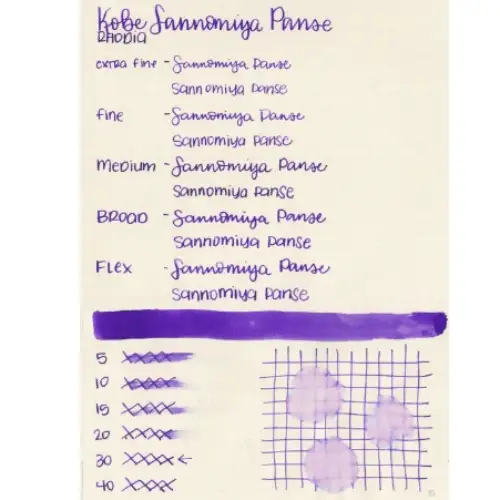 Kobe Sannomiya Panse
RHODIA
extra fine - Sannomiya Panse
Sannomiya Panse
fine - Sannomiya Panse
Sannomiya Panse
Medium - Sannomiya Panse
Sannomiya Panse
BROAD - Sannomiya Panse
Sannomiya Panse
FLEX - Sannomiya Panse
Sannomiya Panse
5
10
15
20
30 ←
40